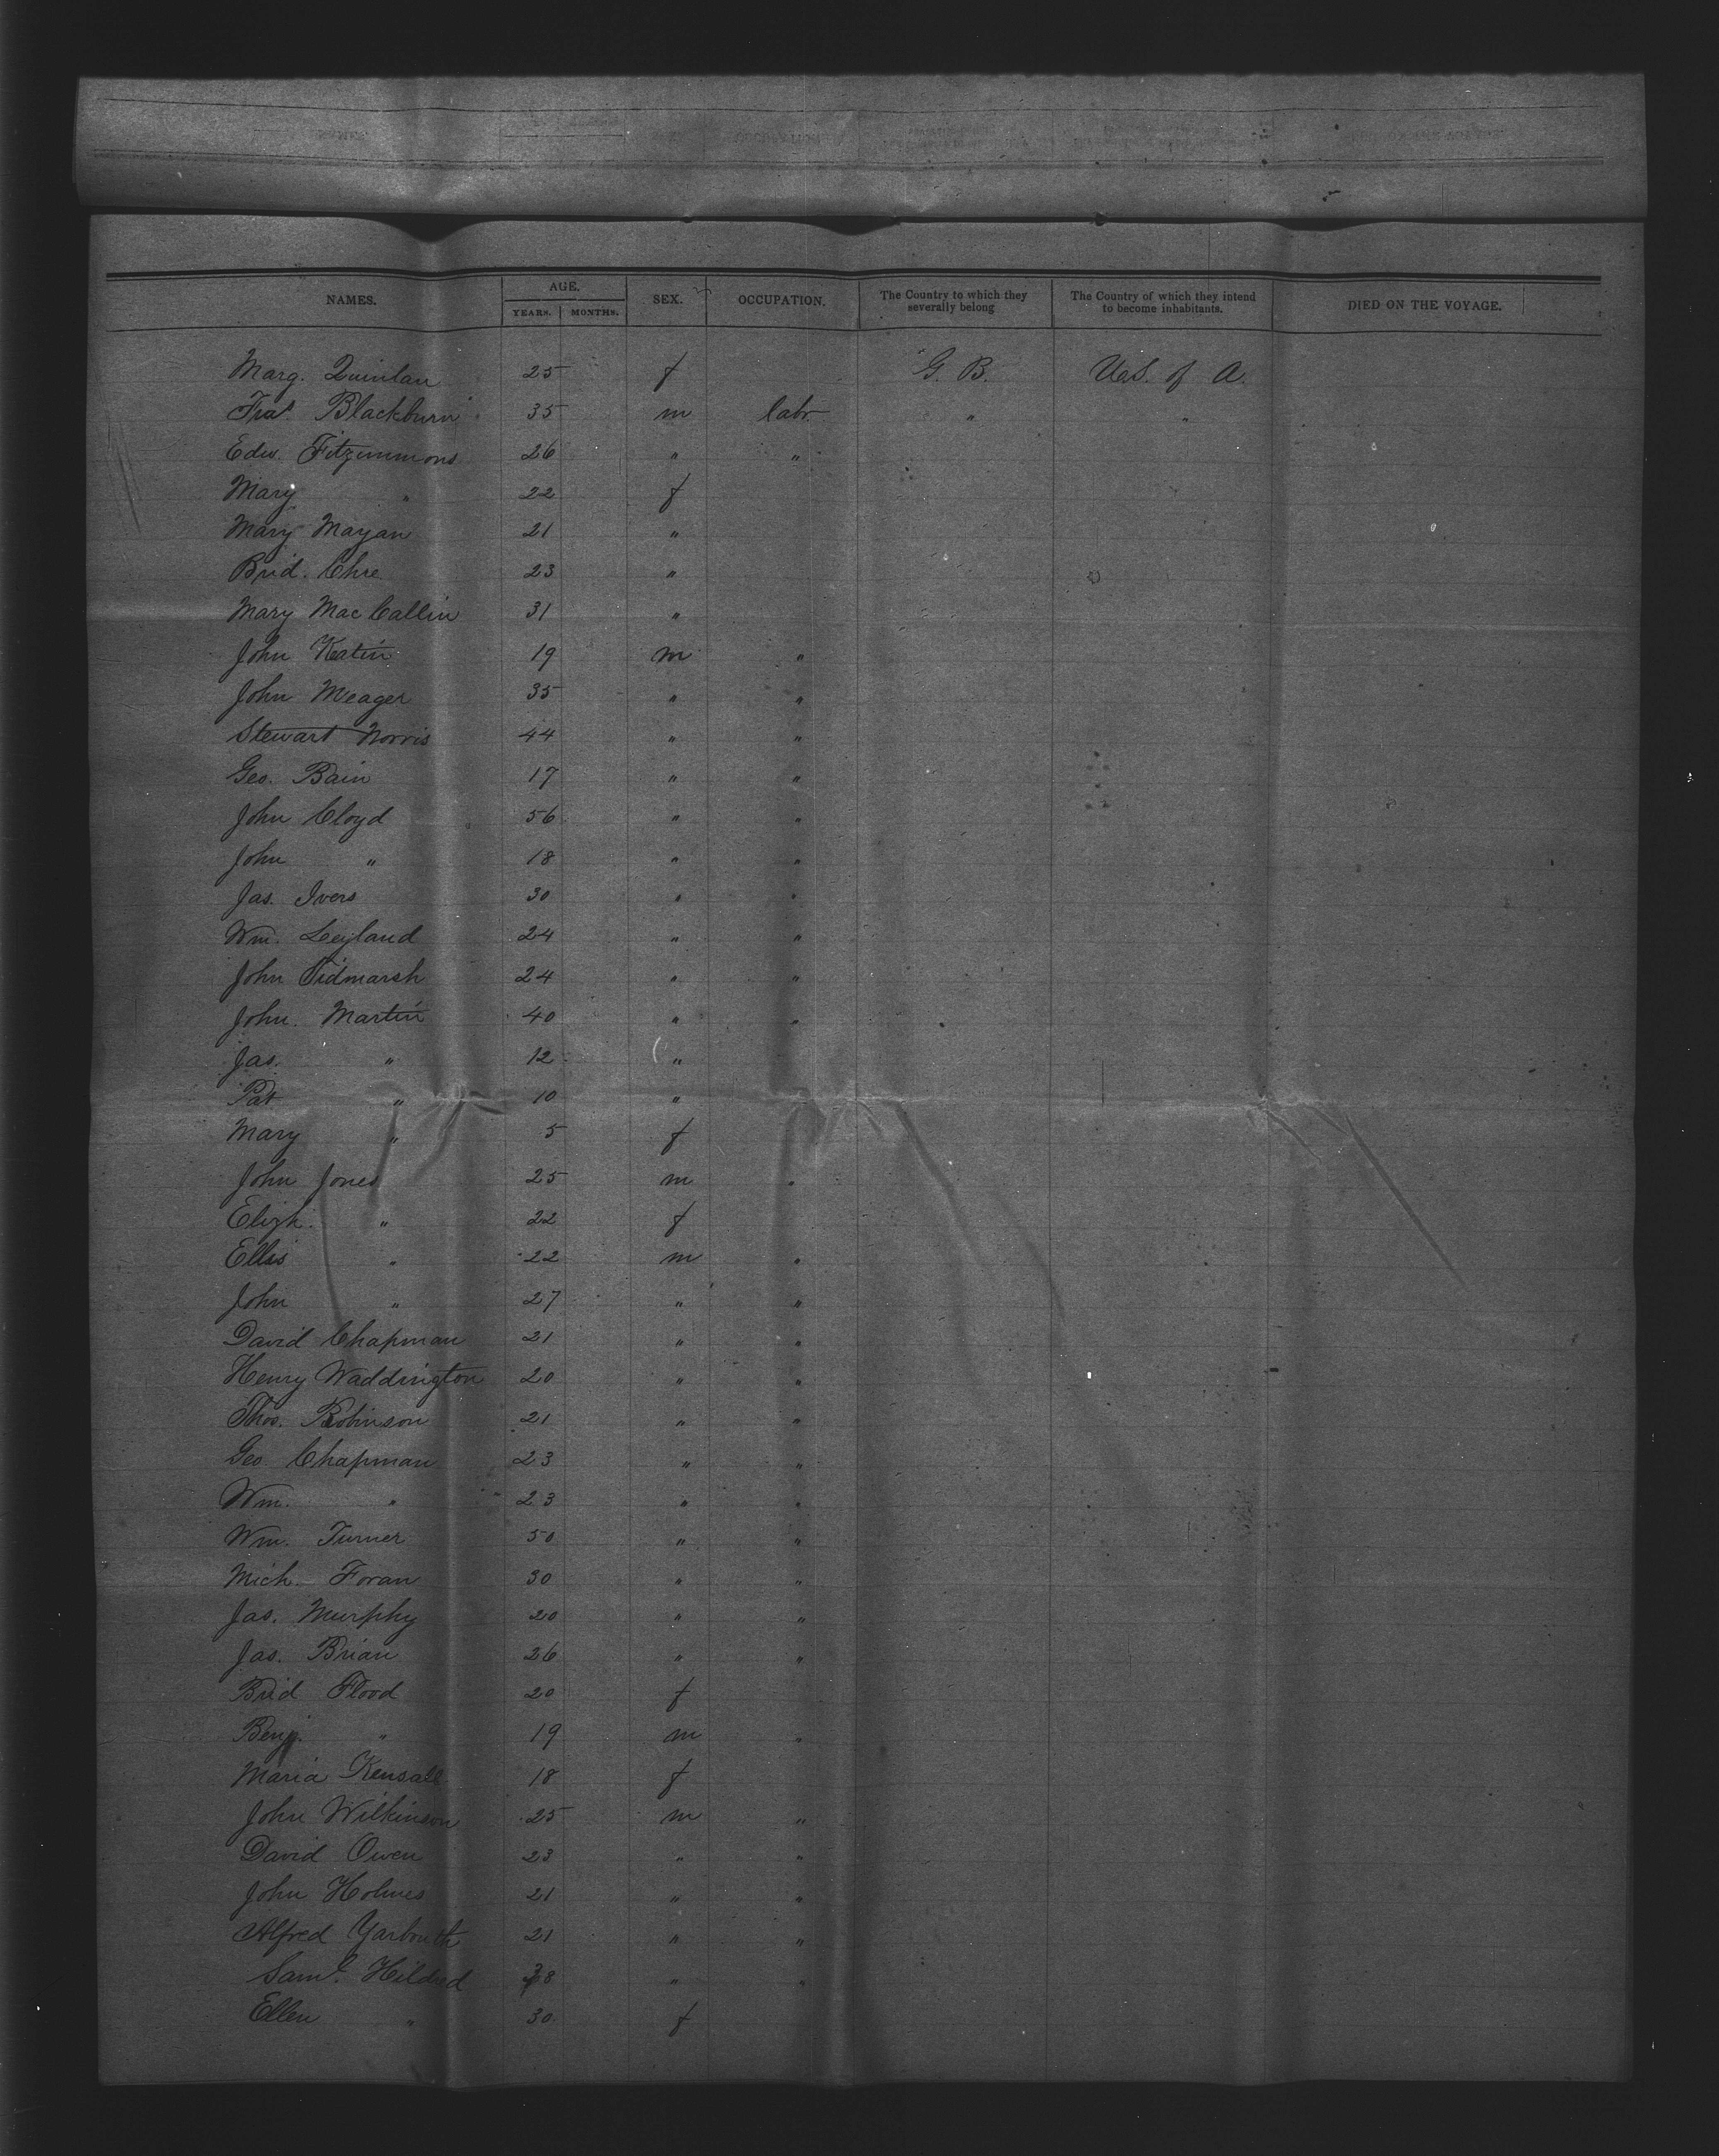 NAMES. AGE. SEX. OCCUPATION. The Country to which they severally belong The Country of which they intend to become inhabitants. DIED ON THE VOYAGE.
YEARS. MONTHS.
Marg. Quinlan 25 f G. B. U.S. of A.
Blackburn 35 m labr " "
Edw. Fitzimmons 26 " "
Mary " 22 f
Mary Mayan 21 "
Brid. 23 "
Mary Mac Callin 31 "
John Keatin 19 m "
John Meager 35 " "
Stewart Norris 44 " "
Geo. Bain 17 " "
John Cloyd 56 " "
John " 18 " "
Jas. Ivers 30 " "
Wm. Leyland 24 " "
John Tidmarsh 24 " "
John Martin 40 " "
Jas. " 12 "
Pat " 10 "
Mary " 5 f
John Jones 25 m "
Elizh. " 22 f
Ellis " 22 m "
John " 27 " "
David Chapman 21 " "
Henry Waddington 20 " "
Thos. Robinson 21 " "
Geo. Chapman 23 " "
Wm. " 23 " "
Wm. Turner 50 " "
Mich. Foran 30 " "
Jas. Murphy 20 " "
Jas. Brian 26 " "
Brid Flood 20 f
Benj. " 19 m "
Maria Kensall 18 f
John Wilkinson 25 m "
David Owen 23 " "
John Holmes 21 " "
Alfred Yarbouth 21 " "
Saml. Hildred 38 " "
Ellen " 30 f